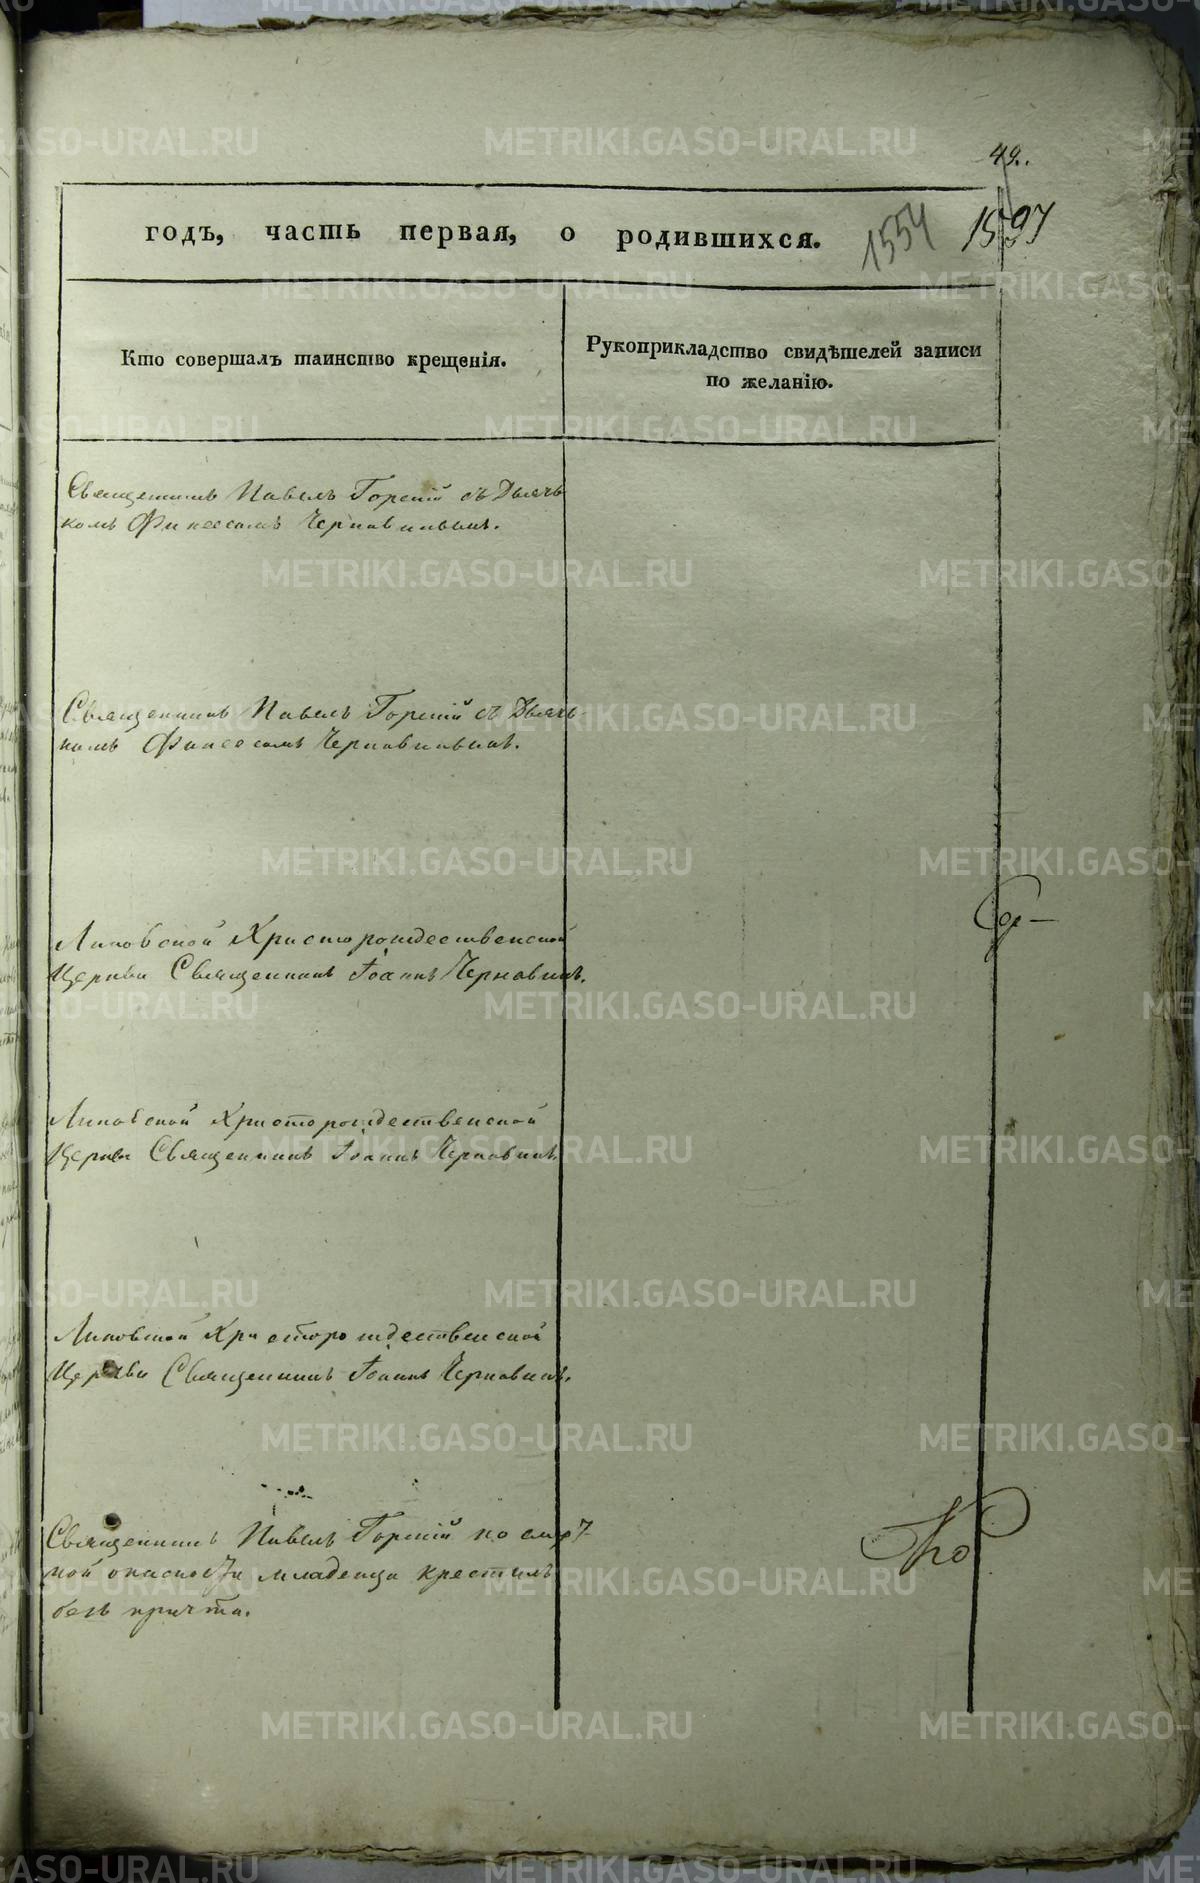 49.
годъ, часть первая, о родившихся.
1554
Кто совершалъ таинство крещенія.
Рукоприкладство свидѣтелей записи
по желанію.
Священникъ Павелъ Горскій съ Дьячь
комъ Финеесомъ Чернавинымъ.
Священникъ Павелъ Горскій съ Дьячь
комъ Финеесомъ Чернавинымъ.
Липовской Христорождественской
Церкви Священникъ Іоаннъ Чернавинъ.
Липовской Христорождественской
Церкви Священникъ Іоаннъ Чернавинъ.
Липовской Христорождественской
Церкви Священникъ Іоаннъ Чернавинъ.
Священникъ Павелъ Горскій по
ной опасности младенца крестилъ
безъ причта.
по
METRIKI.GASO-URAL.RU